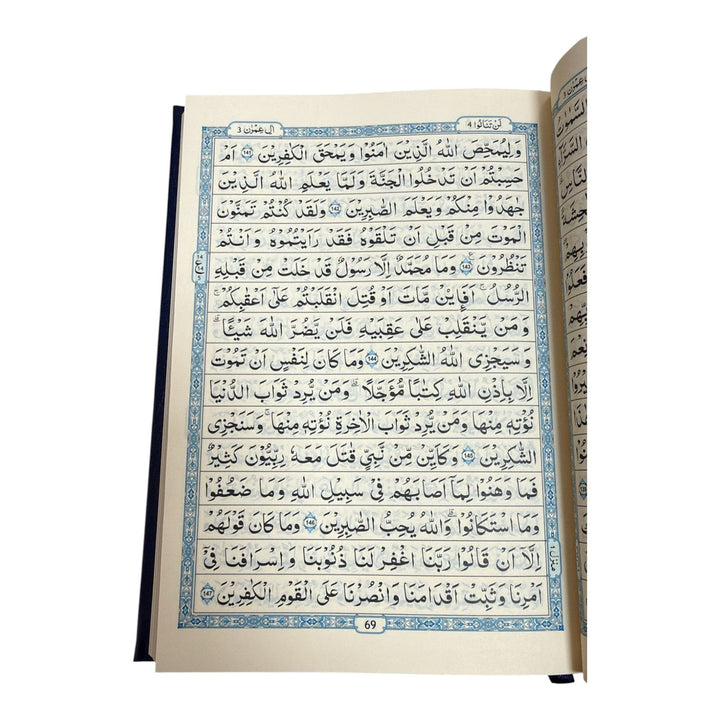 لَنْ تَنَالُوا 4
اٰلِ عِمْرٰن 3
وَلِيُمَحِّصَ اللّٰهُ الَّذِيْنَ اٰمَنُوْا وَيَمْحَقَ الْكٰفِرِيْنَ 141 اَمْ
حَسِبْتُمْ اَنْ تَدْخُلُوا الْجَنَّةَ وَلَمَّا يَعْلَمِ اللّٰهُ الَّذِيْنَ
جٰهَدُوْا مِنْكُمْ وَيَعْلَمَ الصّٰبِرِيْنَ 142 وَلَقَدْ كُنْتُمْ تَمَنَّوْنَ
الْمَوْتَ مِنْ قَبْلِ اَنْ تَلْقَوْهُ فَقَدْ رَاَيْتُمُوْهُ وَاَنْتُمْ
تَنْظُرُوْنَ 143 وَمَا مُحَمَّدٌ اِلَّا رَسُوْلٌ قَدْ خَلَتْ مِنْ قَبْلِهِ
الرُّسُلُ ۚ اَفَا۟ئِنْ مَّاتَ اَوْ قُتِلَ انْقَلَبْتُمْ عَلٰٓى اَعْقَابِكُمْ ۚ
وَمَنْ يَّنْقَلِبْ عَلٰى عَقِبَيْهِ فَلَنْ يَّضُرَّ اللّٰهَ شَيْـًٔا ؕ
وَسَيَجْزِى اللّٰهُ الشّٰكِرِيْنَ 144 وَمَا كَانَ لِنَفْسٍ اَنْ تَمُوْتَ
اِلَّا بِاِذْنِ اللّٰهِ كِتٰبًا مُّؤَجَّلًا ؕ وَمَنْ يُّرِدْ ثَوَابَ الدُّنْيَا
نُؤْتِهٖ مِنْهَا ۚ وَمَنْ يُّرِدْ ثَوَابَ الْاٰخِرَةِ نُؤْتِهٖ مِنْهَا ؕ وَسَنَجْزِى
الشّٰكِرِيْنَ 145 وَكَاَيِّنْ مِّنْ نَّبِىٍّ قٰتَلَ ۙ مَعَهٗ رِبِّيُّوْنَ كَثِيْرٌ ۚ
فَمَا وَهَنُوْا لِمَآ اَصَابَهُمْ فِىْ سَبِيْلِ اللّٰهِ وَمَا ضَعُفُوْا
وَمَا اسْتَكَانُوْا ؕ وَاللّٰهُ يُحِبُّ الصّٰبِرِيْنَ 146 وَمَا كَانَ قَوْلَهُمْ
اِلَّآ اَنْ قَالُوْا رَبَّنَا اغْفِرْ لَنَا ذُنُوْبَنَا وَاِسْرَافَنَا فِىْٓ
اَمْرِنَا وَثَبِّتْ اَقْدَامَنَا وَانْصُرْنَا عَلَى الْقَوْمِ الْكٰفِرِيْنَ 147
69